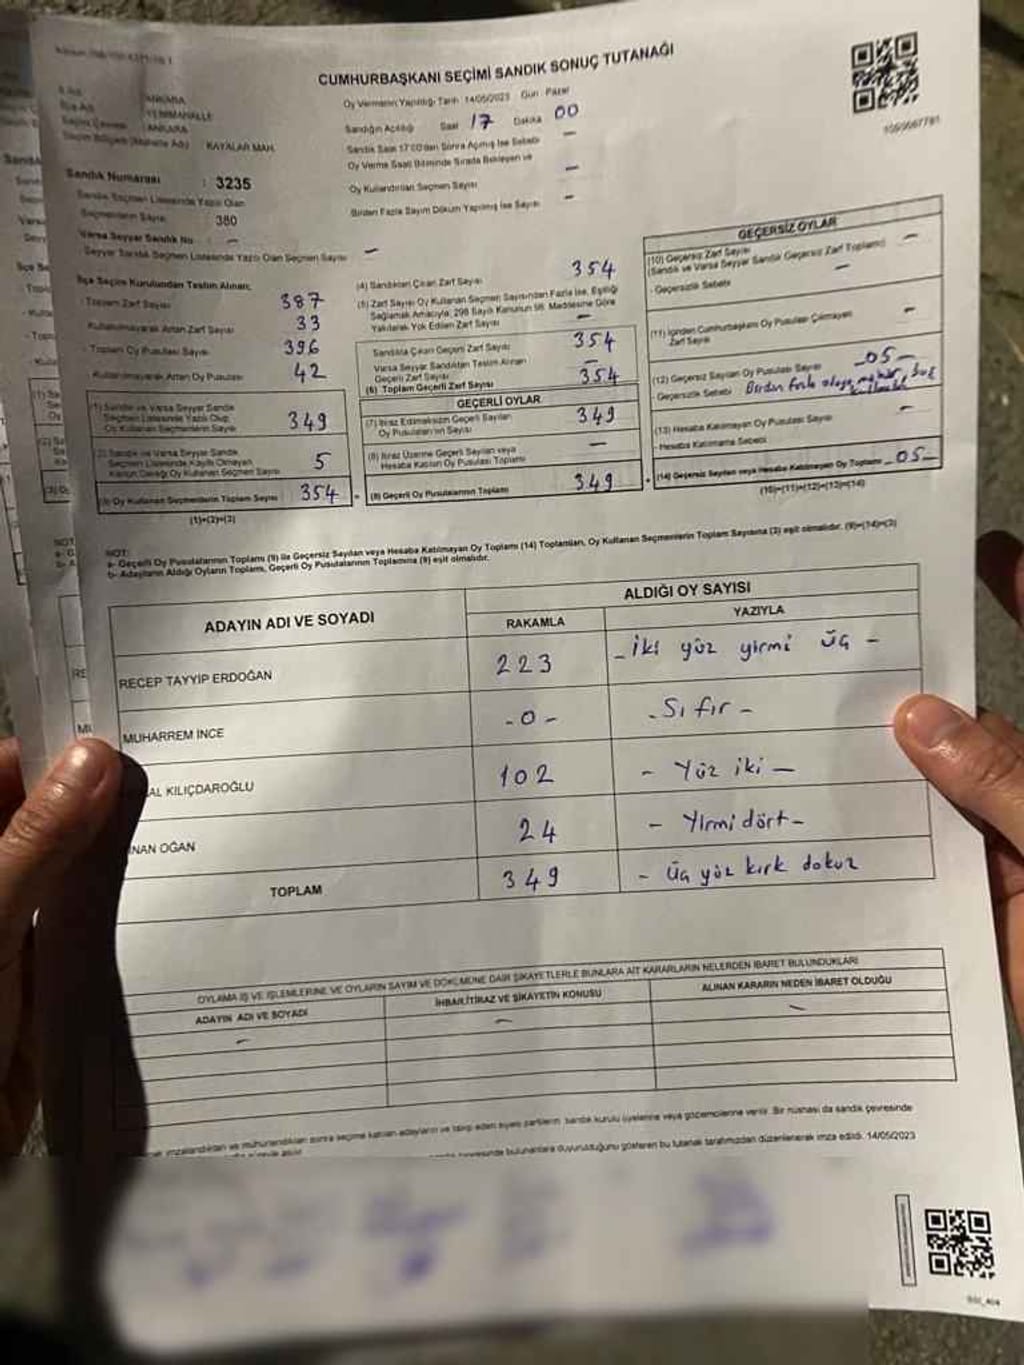 CUMHURBAŞKANI SEÇİMİ SANDIK SONUÇ TUTANAĞI
İl Adı : ANKARA
İlçe Adı : YENİMAHALLE
Seçim Çevresi : ANKARA
Seçim Bölgesi (Mahalle Adı) KAYALAR MAH.
Sandık Numarası : 3235
Sandık Seçmen Listesinde Yazılı Olan
Seçmenlerin Sayısı 380
Varsa Seyyar Sandık No : -
Seyyar Sandık Seçmen Listesinde Yazılı Olan Seçmen Sayısı -
Oy Vermenin Yapıldığı Tarih 14/05/2023 Gün : Pazar
Sandığın Açılığı Saat 17 Dakika 00
Sandık Saat 17:00'dan Sonra Açılmış İse Sebebi -
Oy Verme Saati Bitiminde Sırada Bekleyen ve
Oy Kullandırılan Seçmen Sayısı -
Birden Fazla Sayım Döküm Yapılmış İse Sayısı -
İlçe Seçim Kurulundan Teslim Alınan;
- Toplam Zarf Sayısı 387
- Kullanılmayarak Artan Zarf Sayısı 33
- Toplam Oy Pusulası Sayısı 396
- Kullanılmayarak Artan Oy Pusulası 42
(1) Sandık ve Varsa Seyyar Sandık
Seçmen Listesinde Yazılı Olup
Oy Kullanan Seçmenlerin Sayısı 349
(2) Sandık ve Varsa Seyyar Sandık
Seçmen Listesinde Kayıtlı Olmayan
Kanun Gereği Oy Kullanan Seçmen Sayısı 5
(3) Oy Kullanan Seçmenlerin Toplam Sayısı 354
(1)+(2)=(3)
(4) Sandıktan Çıkan Zarf Sayısı 354
(5) Zarf Sayısı Oy Kullanan Seçmen Sayısından Fazla İse, Eşitliği
Sağlamak Amacıyla; 298 Sayılı Kanunun 98. Maddesine Göre
Yakılarak Yok Edilen Zarf Sayısı -
Sandıkta Çıkan Geçerli Zarf Sayısı 354
Varsa Seyyar Sandıktan Teslim Alınan
Geçerli Zarf Sayısı -
(6) Toplam Geçerli Zarf Sayısı 354
GEÇERLİ OYLAR
(7) İtiraz Edilmeksizin Geçerli Sayılan
Oy Pusulalarının Sayısı 349
(8) İtiraz Üzerine Geçerli Sayılan veya
Hesaba Katılan Oy Pusulası Toplamı -
(9) Geçerli Oy Pusulalarının Toplamı 349
GEÇERSİZ OYLAR
(10) Geçersiz Zarf Sayısı
(Sandık ve Varsa Seyyar Sandık Geçersiz Zarf Toplamı) -
- Geçersizlik Sebebi -
(11) İçinden Cumhurbaşkanı Oy Pusulası Çıkmayan
Zarf Sayısı -
(12) Geçersiz Sayılan Oy Pusulası Sayısı -05-
- Geçersizlik Sebebi Birden fazla
(13) Hesaba Katılmayan Oy Pusulası Sayısı -
- Hesaba Katılmama Sebebi
(14) Geçersiz Sayılan veya Hesaba Katılmayan Oy Toplamı -05-
(10)+(11)+(12)+(13)=(14)
NOT:
a- Geçerli Oy Pusulalarının Toplamı (9) ile Geçersiz Sayılan veya Hesaba Katılmayan Oy Toplamı (14) Toplamları, Oy Kullanan Seçmenlerin Toplam Sayısına (3) eşit olmalıdır. (9)+(14)=(3)
b- Adayların Aldığı Oyların Toplamı, Geçerli Oy Pusulalarının Toplamına (9) eşit olmalıdır.
ADAYIN ADI VE SOYADI ALDIĞI OY SAYISI
RAKAMLA YAZIYLA
RECEP TAYYİP ERDOĞAN 223 - iki yüz yirmi üç -
MUHARREM İNCE -0- - Sıfır -
AL KILIÇDAROĞLU 102 - Yüz iki -
NAN OĞAN 24 - Yirmi dört -
TOPLAM 349 - üç yüz kırk dokuz
OYLAMA İŞ VE İŞLEMLERİNE VE OYLARIN SAYIM VE DÖKÜMÜNE DAİR ŞİKAYETLERLE BUNLARA AİT KARARLARIN NELERDEN İBARET BULUNDUKLARI
ADAYIN ADI VE SOYADI İHBAR/İTİRAZ VE ŞİKAYETİN KONUSU ALINAN KARARIN NEDEN İBARET OLDUĞU
- - -
imzalandıktan ve mühürlendikten sonra seçime katılan adayların ve siyasi partilerin sandık kurulu üyelerine veya gözlemcilerine verilir. Bir nüshası da sandık çevresinde
bulunanlara duyurulduğunu gösteren bu tutanak tarafımızdan düzenlenerek imza edildi. 14/05/2023